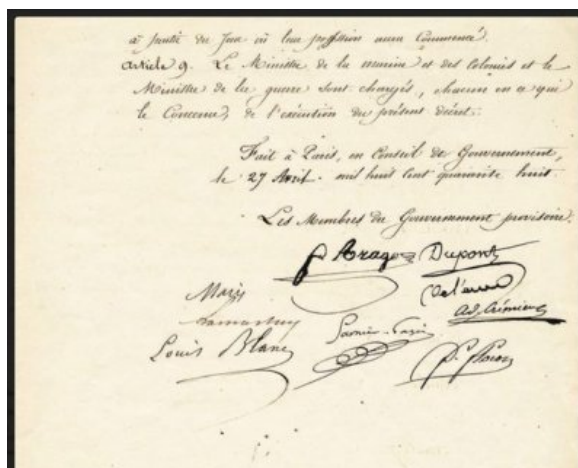 à partir du jour où leur possession aura Commencé.
Article 9. Le Ministre de la marine et des Colonies et le
Ministre de la guerre sont chargés, chacun en ce qui
le Concerne, de l'exécution du présent décret.
Fait à Paris, en Conseil de Gouvernement,
le 27 Avril mil huit cent quarante huit.
Les Membres du Gouvernement provisoire.
F Arago Dupont
de l'eure
Marie
ad. Crémieux
Lamartine
Garnier-Pagès
Louis Blanc
F. Flocon